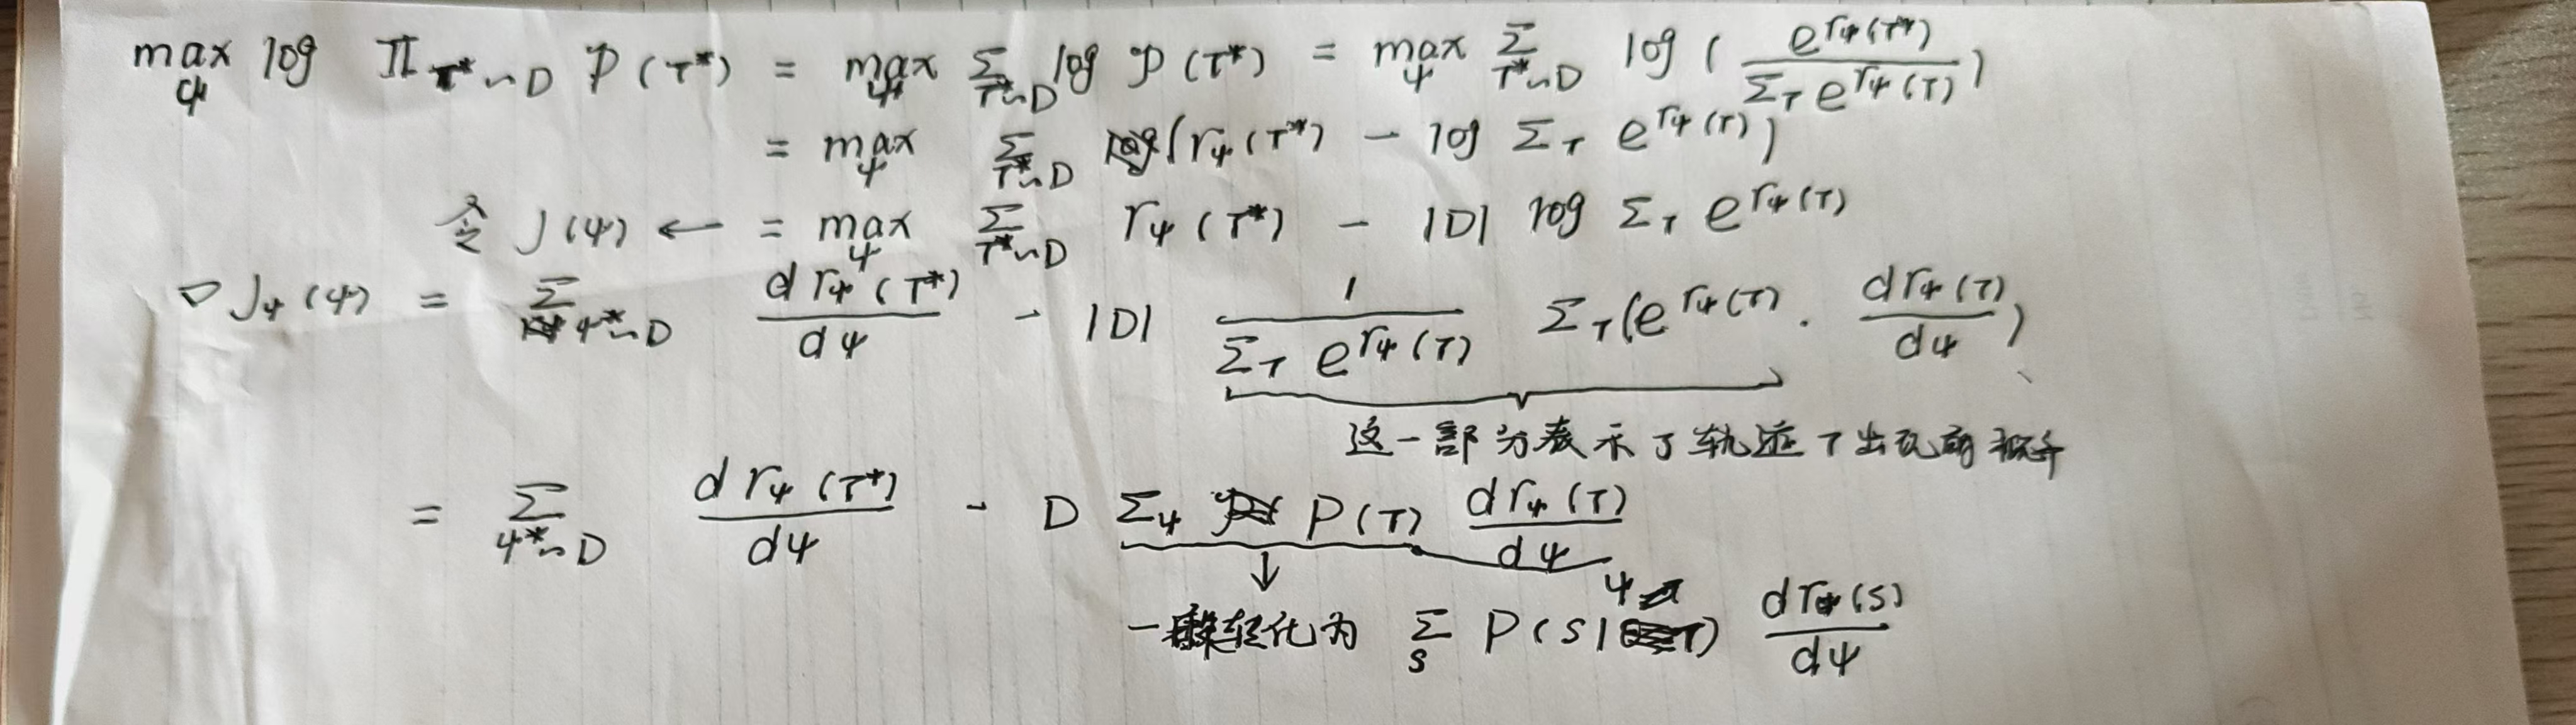 max_ψ log Π_{τ*~D} P(τ*) = max_ψ Σ_{τ*~D} log P(τ*) = max_ψ Σ_{τ*~D} log ( e^{r_ψ(τ*)} / Σ_τ e^{r_ψ(τ)} )
= max_ψ Σ_{τ*~D} (r_ψ(τ*) - log Σ_τ e^{r_ψ(τ)})
令 J(ψ) ← = max_ψ Σ_{τ*~D} r_ψ(τ*) - |D| log Σ_τ e^{r_ψ(τ)}
∇J_ψ(ψ) = Σ_{ψ*~D} d r_ψ(τ*) / dψ - |D| 1 / Σ_τ e^{r_ψ(τ)} Σ_τ (e^{r_ψ(τ)} · d r_ψ(τ) / dψ)
这一部分表示了轨迹 τ 出现的概率
= Σ_{ψ*~D} d r_ψ(τ*) / dψ - D Σ_ψ P(τ) d r_ψ(τ) / dψ
↓
一般转化为 Σ_s P(s| ψ) d r_ψ(s) / dψ